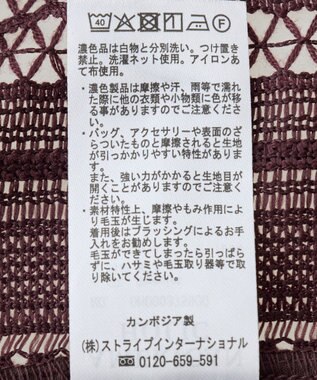 40 F
濃色品は白物と分別洗い。つけ置き
禁止。洗濯ネット使用。アイロンあ
て布使用。
・濃色製品は摩擦や汗、雨等で濡れ
た際に他の衣類や小物類に色が移
る事がありますのでご注意くださ
い。
・バッグ、アクセサリーや表面のざ
らついたものと摩擦されると生地
が引っかかりやすい特性がありま
す。
また、強い力がかかると生地目が
開くことがありますのでご注意く
ださい。
・素材特性上、摩擦やもみ作用によ
り毛玉が生じます。
着用後はブラッシングによるお手
入れをお勧めします。
毛玉ができてしまったら引っぱら
ずに、ハサミや毛玉取り器等で取
り除いてください。
カンボジア製
(株)ストライプインターナショナル
0120-659-591